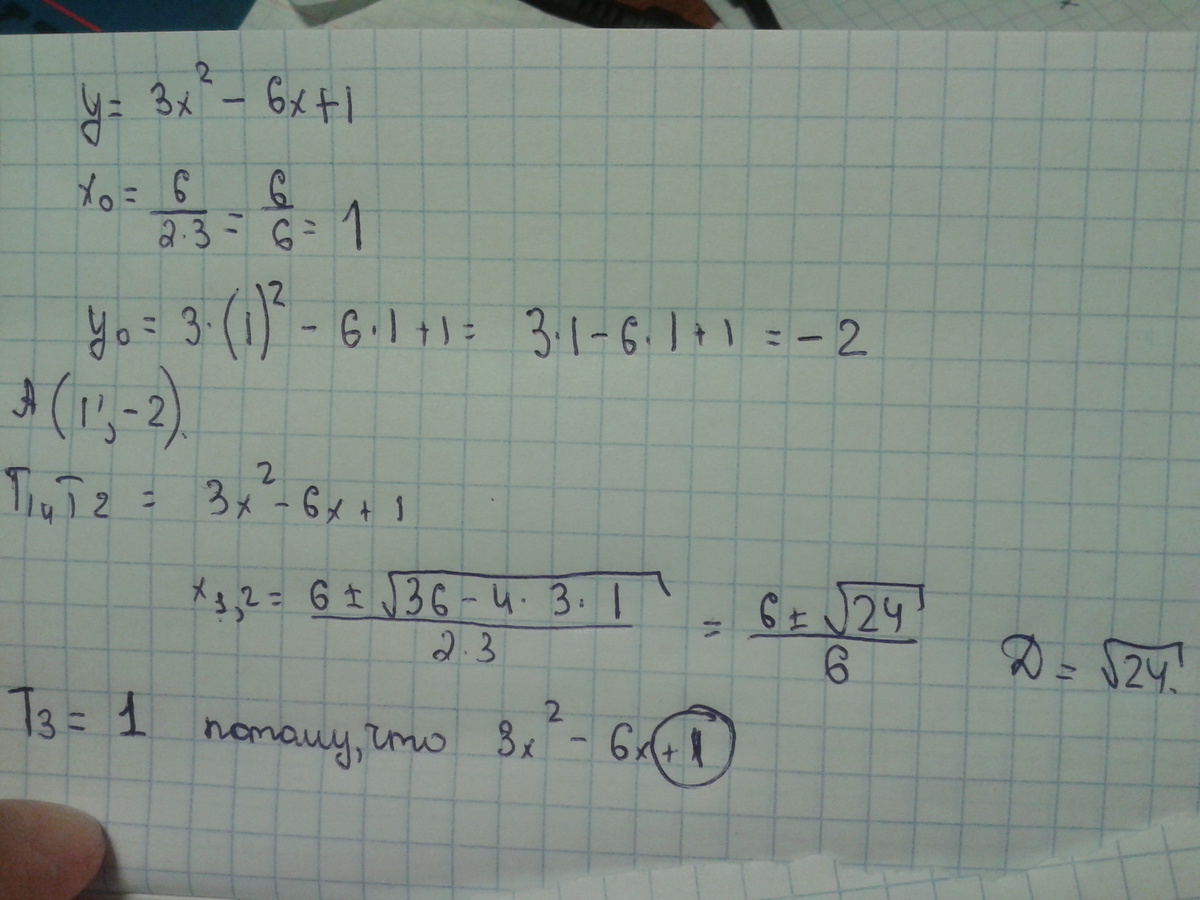 y = 3x² - 6x + 1
x₀ = 6/(2·3) = 6/6 = 1
y₀ = 3·(1)² - 6·1 + 1 = 3·1 - 6·1 + 1 = -2
A (1; -2).
T1 и T2 = 3x² - 6x + 1
x₁,₂ = (6 ± √(36 - 4·3·1))/(2·3) = (6 ± √24)/6 D = √24.
T3 = 1 потому, что 3x² - 6x + 1